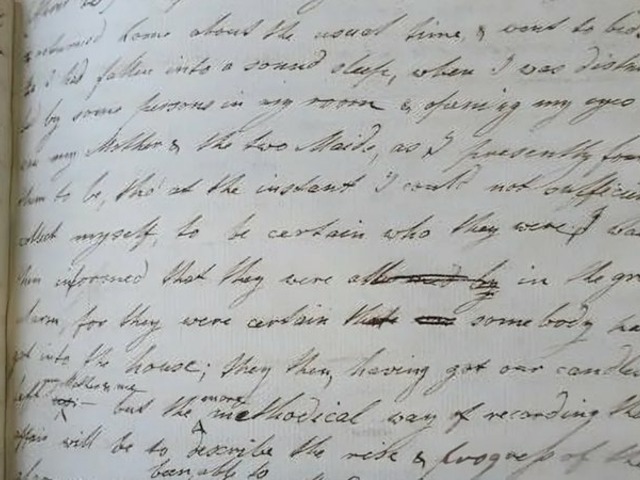 returned home about the usual time, & went to bed
I had fallen into a sound sleep, when I was distur
by some persons in my room & opening my eyes
my Mother & the two Maids, as I presently fou
them to be, tho' at the instant I could not sufficie
collect myself, to be certain who they were, I was
then informed that they were in the gr
alarm, for they were certain that somebody ha
got into the house; they then, having got our candle
but the more methodical way of recording the
affair will be to describe the rise & progress of th
been able to